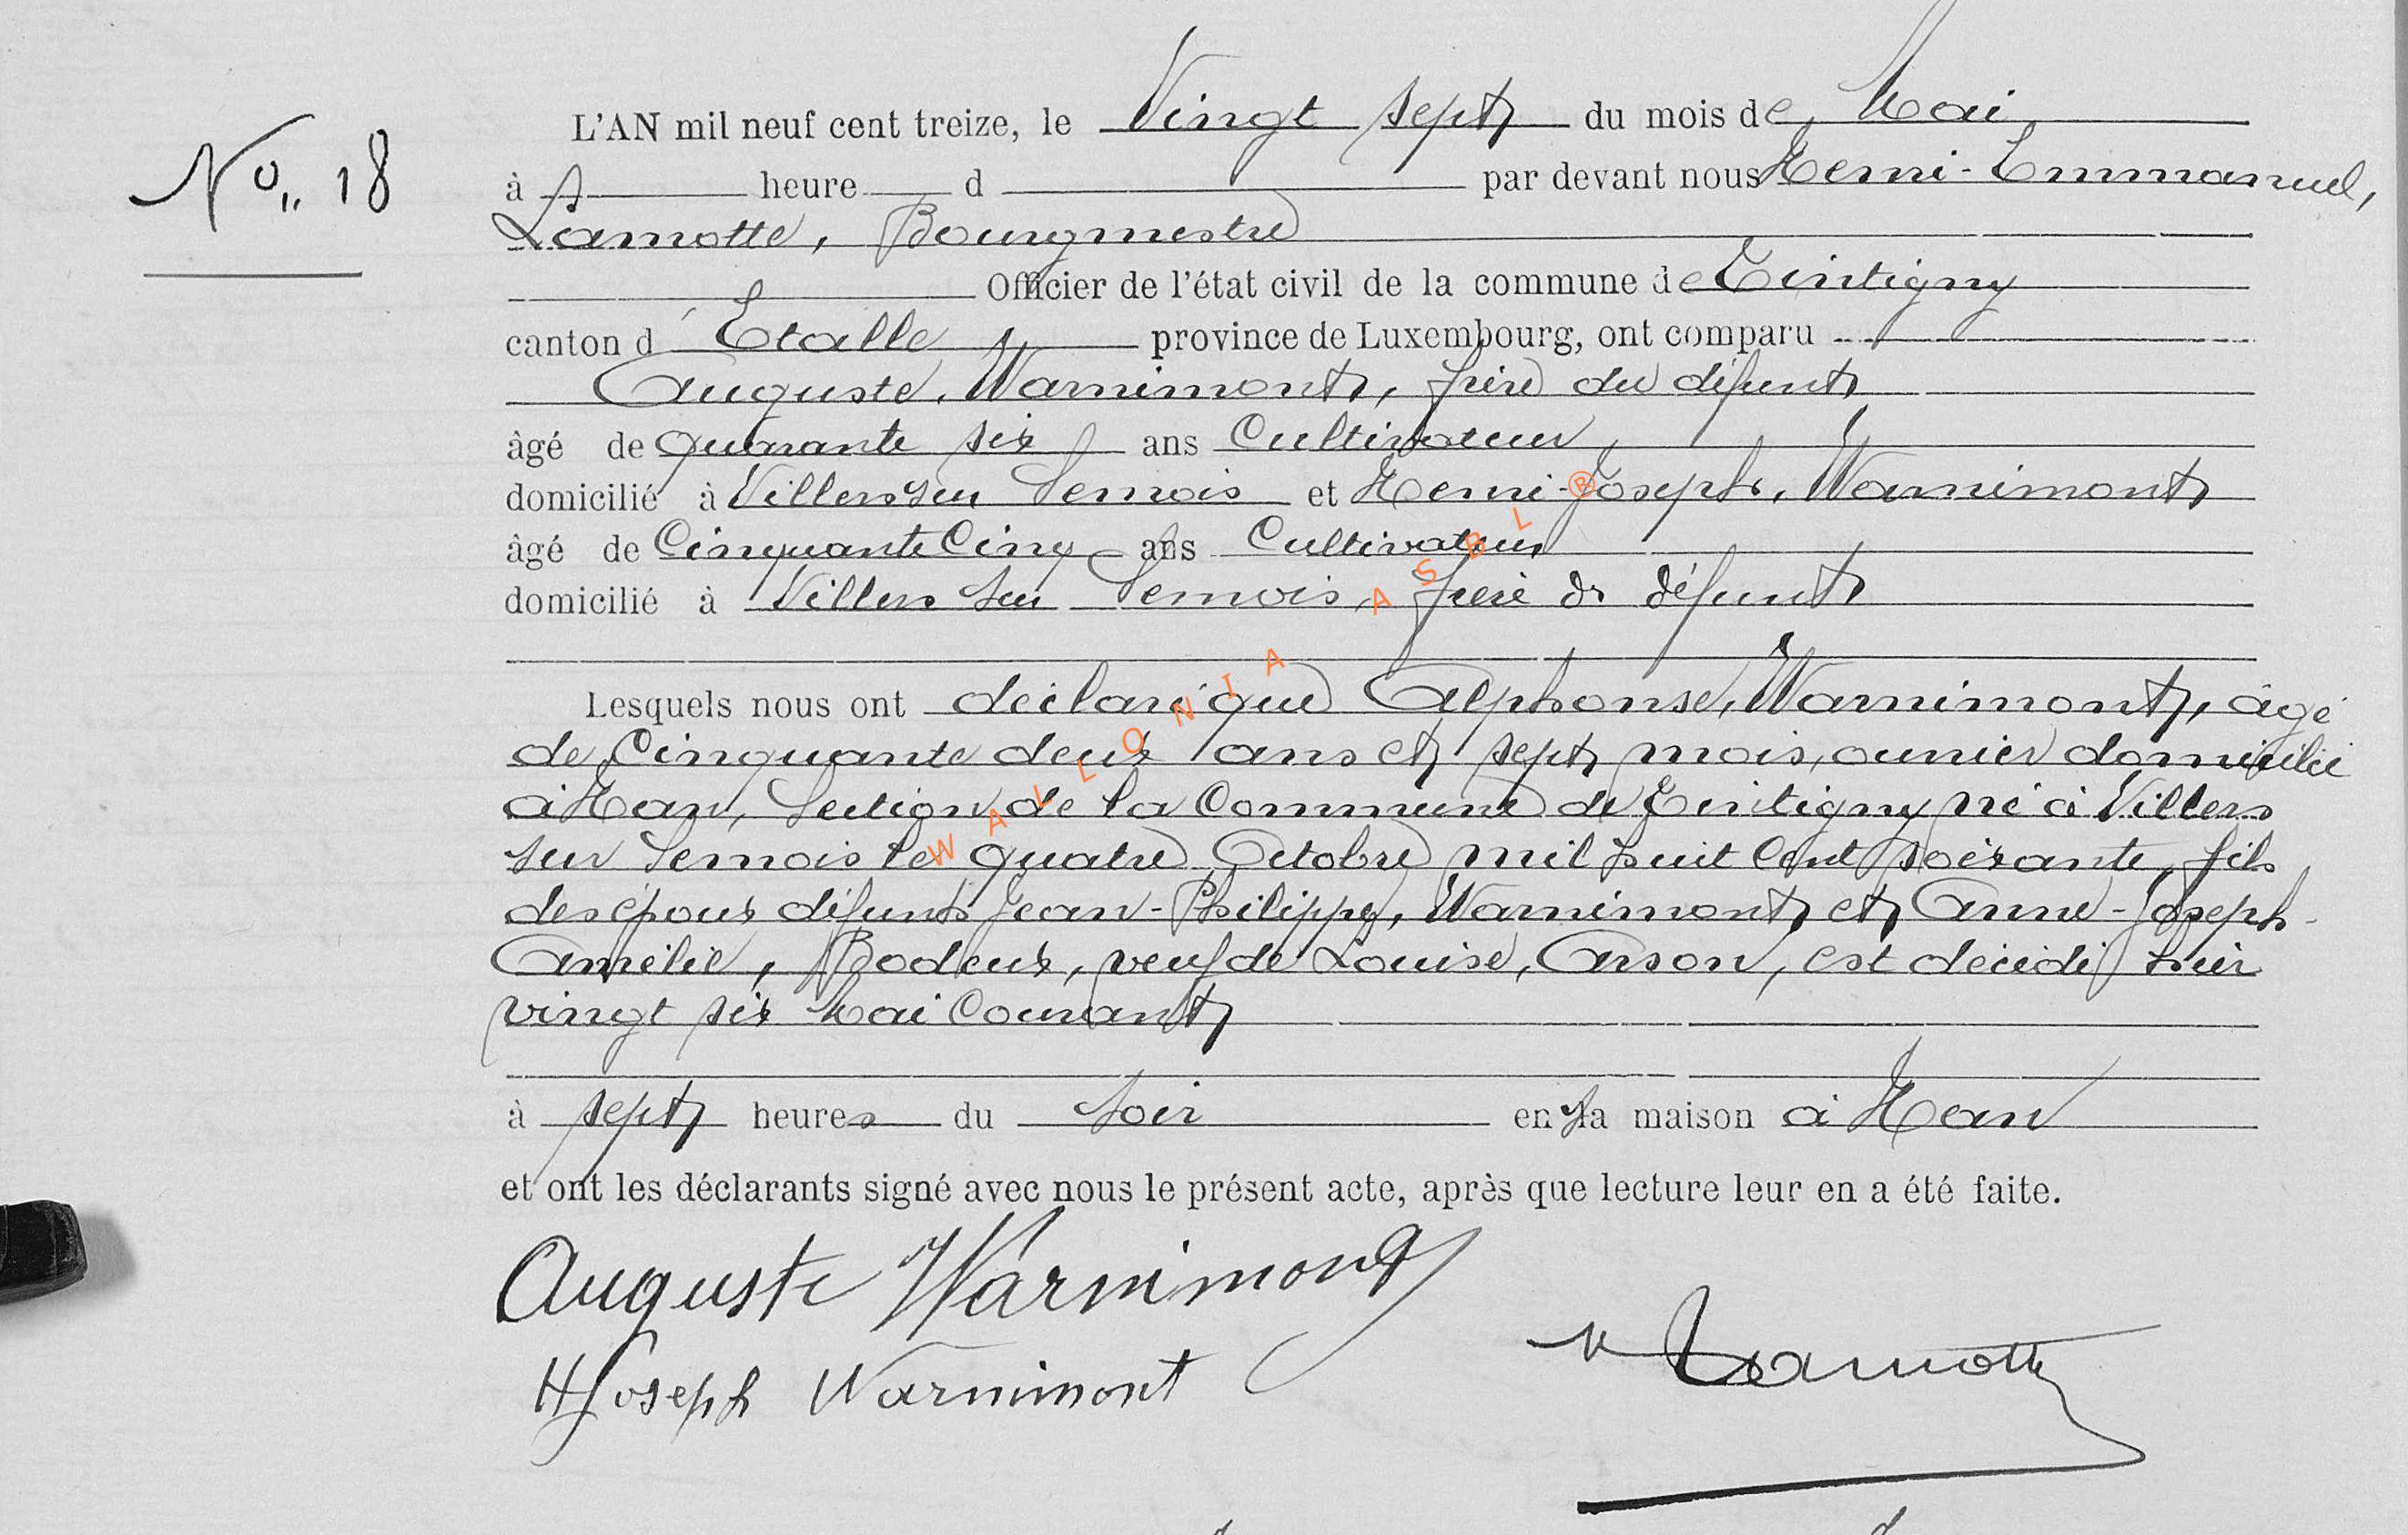 L'AN mil neuf cent treize, le Vingt sept du mois de Mai
No 18
à heure d par devant nous Henri-Emmanuel,
Lamotte, Bourgmestre
Officier de l'état civil de la commune de Tintigny
canton d'Etalle province de Luxembourg, ont comparu
Auguste, Warnimont, frère du défunt
âgé de quarante six ans Cultivateur,
domicilié à Villers sur Semois et Henri-Joseph, Warnimont
âgé de Cinquante Cinq ans Cultivateur
domicilié à Villers sur Semois, frère du défunt
Lesquels nous ont déclaré que Alphonse, Warnimont, âgé
de Cinquante deux ans et sept mois, ouvrier domicilié
à Han, Section de la Commune de Tintigny né à Villers
sur Semois le quatre Octobre mil huit Cent soixante, fils
des époux défunts Jean-Philippe, Warnimont et Anne-Joseph-
Amélie, Bodeux, veuf de Louise, Arson, est décédé hier
vingt six Mai Courant
à sept heures du Soir en sa maison à Han
et ont les déclarants signé avec nous le présent acte, après que lecture leur en a été faite.
Auguste Warnimont
HJoseph Warnimont
H Lamotte
WALLONIA ASBL ®